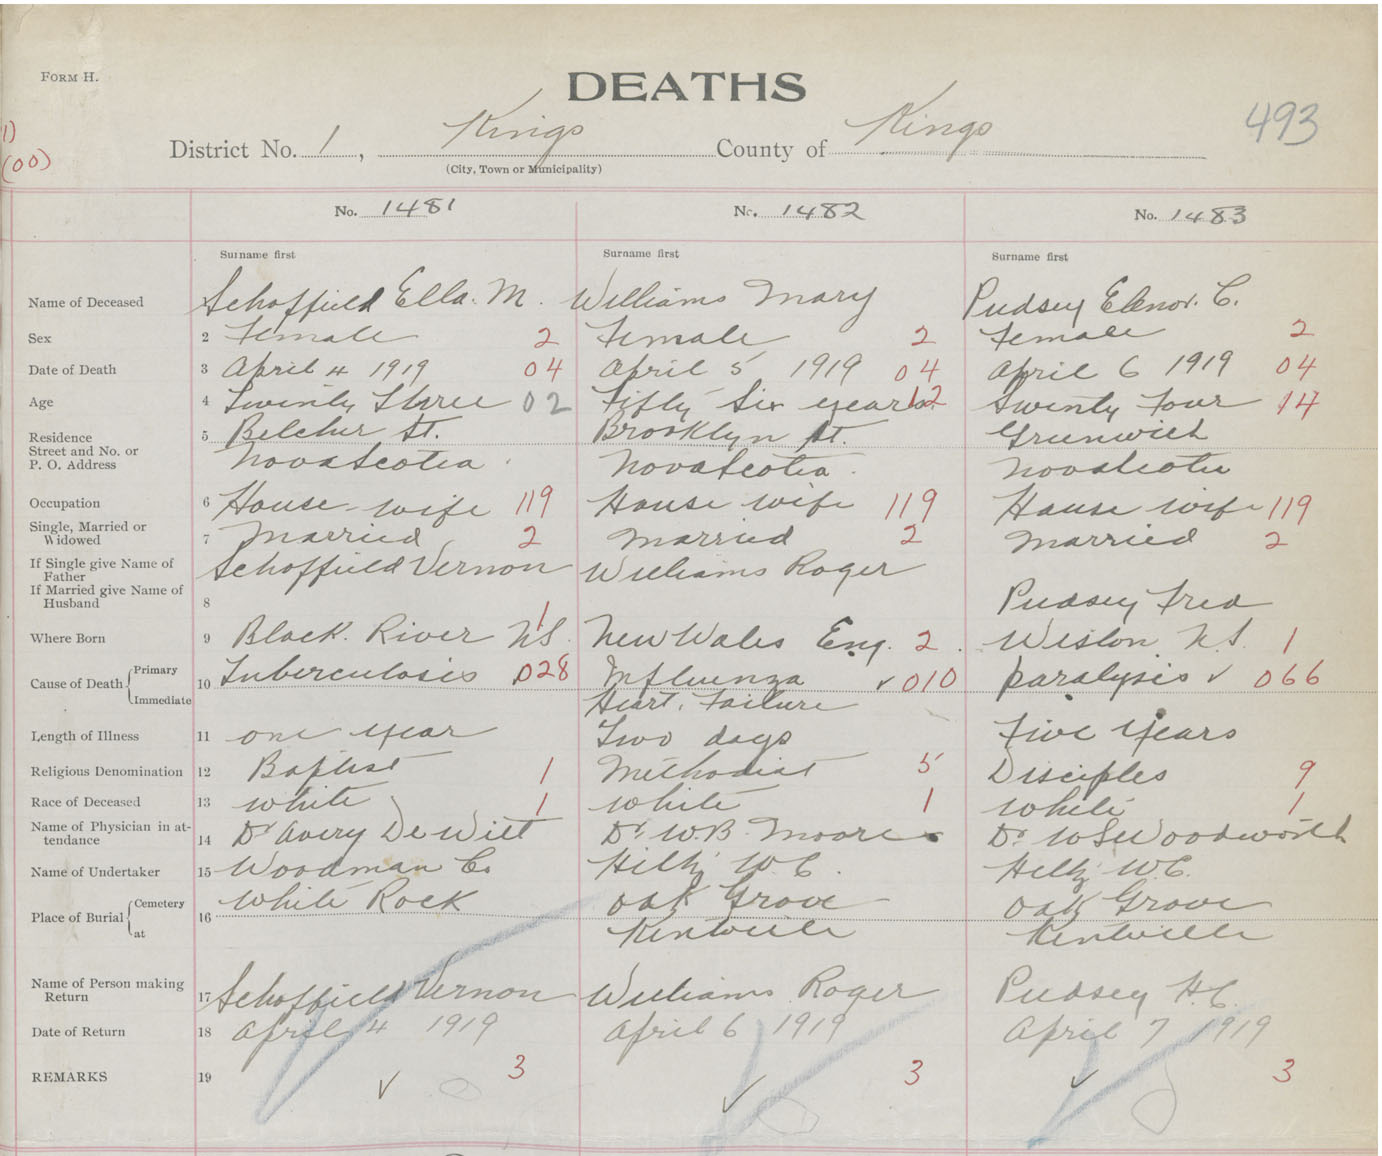 FORM H.
DEATHS
493
1)
(00)
District No. 1, Kings County of Kings
(City, Town or Municipality)
No. 1481 No. 1482 No. 1483
Surname first Surname first Surname first
Name of Deceased Schoffield Ella. M. Williams Mary Pudsey Elenor. C.
Sex 2 Female 2 Female 2 Female 2
Date of Death 3 April 4 1919 04 April 5 1919 04 April 6 1919 04
Age 4 Twenty Three 02 Fifty Six years 12 Twenty Four 14
Residence 5 Belcher St. Brooklyn St. Greenwich
Street and No. or
P. O. Address Nova Scotia Nova Scotia Nova Scotia
Occupation 6 House wife 119 House wife 119 House wife 119
Single, Married or
Widowed 7 Married 2 Married 2 Married 2
If Single give Name of
Father Schoffield Vernon Williams Roger
If Married give Name of
Husband 8 Pudsey Fred
Where Born 9 Black River N.S. 1 New Wales Eng. 2 Weston N.S. 1
Cause of Death Primary 10 Tuberculosis 028 Influenza ✓ 010 paralysis ✓ 066
Immediate Heart Failure
Length of Illness 11 one year Two days Five Years
Religious Denomination 12 Baptist 1 Methodist 5 Disciples 9
Race of Deceased 13 White 1 White 1 White 1
Name of Physician in at-
tendance 14 Dr Avery DeWitt Dr W.B. Moore Dr W S Woodworth
Name of Undertaker 15 Woodman Co W. C. W. C.
Place of Burial Cemetery 16 White Rock Oak Grove Oak Grove
at Kentville Kentville
Name of Person making
Return 17 Schoffield Vernon Williams Roger Pudsey H.C.
Date of Return 18 April 4 1919 April 6 1919 April 7 1919
REMARKS 19 ✓ 3 ✓ 3 ✓ 3